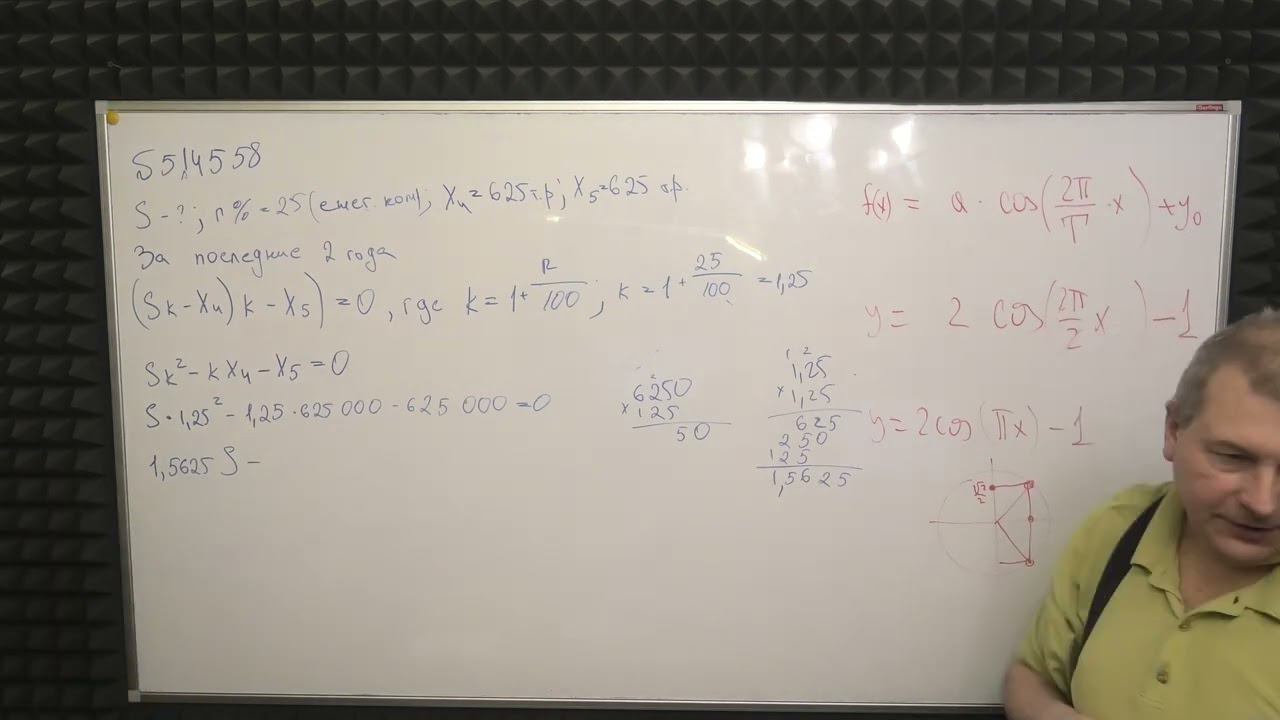 S514558
S - ?; r% = 25 (ежег. ком); X₄ = 625 т.р; X₅ = 625 т.р.
За последние 2 года
(Sk - X₄) k - X₅) = 0, где k = 1 + R/100; k = 1 + 25/100 = 1,25
Sk² - kX₄ - X₅ = 0
S · 1,25² - 1,25 · 625 000 - 625 000 = 0
1,5625 S -
2
6250
× 125
50
1 2
1,25
× 1,25
625
250
125
1,5625
f(x) = a · cos(2π/T · x) + y₀
y = 2 cos(2π/2 x) - 1
y = 2cos(πx) - 1
√2/2